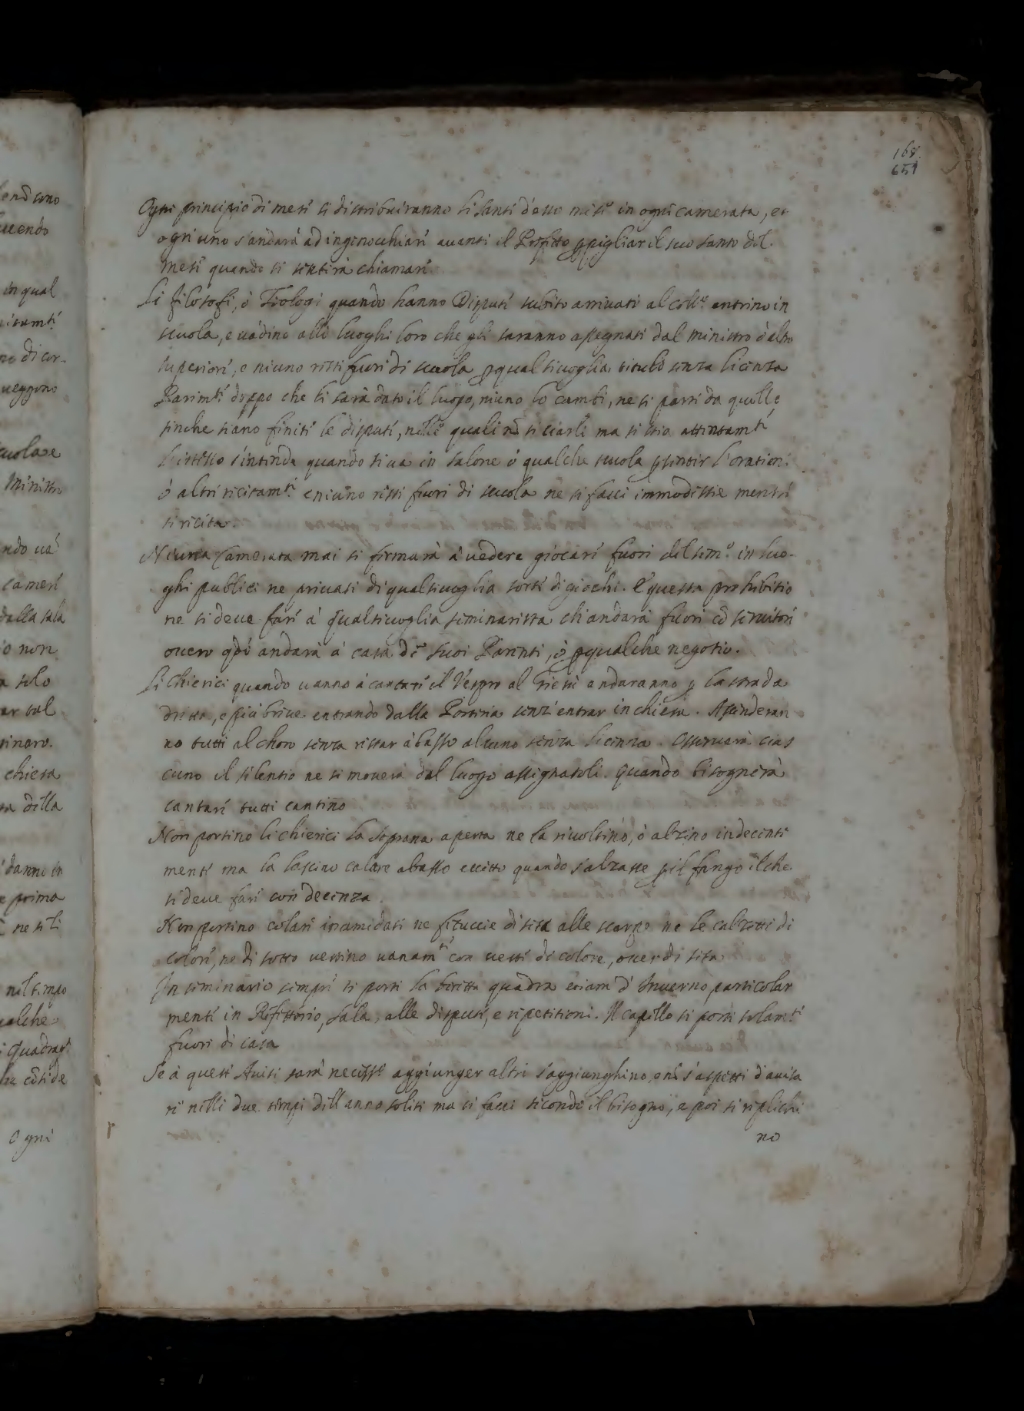 168
651
Ogni principio di mese si distribuiranno li Santi d'esso mese in ogni camerata, et
ogni uno s'andarà ad ingenocchiari avanti il Prefetto p pigliar il suo santo del
mese quando si sentirà chiamare
Li filosofi, ò Teologi quando hanno Dispute subito arrivati al Coll.º entrino in
scuola, e vadino alli luoghi loro che gli saranno assegnati dal ministro ò altro
superiore, e niuno resti fuori di scuola p qualsivoglia titulo senza licenza
Parimti doppo che li sarà dato il luogo, niuno lo cambi, ne si parti da quello
finche siano finite le dispute, nelle quali nō si ciarli ma si stia attentamti
L'istesso s'intenda quando si va in salone ò qualche scuola p sentir l'orationi
ò altri recitamti e niuno resti fuori di scuola ne si facci immodestie mentre
si recita.
Niuna Camerata mai si fermarà à vedere giocare fuori del Semº in luo-
ghi publici ne privati di qualsivoglia sorte di giochi. E questa prohibitio
ne si deve fare à qualsivoglia seminarista ch'andarà fuori cō servitori
overo qdo andarà à casa de suoi Parenti, ò p qualche negotio.
Li Chierici quando vanno à cantare il Vespro al Giesù andaranno p la strada
dritta, e più breve entrando dalla Portina senz'entrar in chiesa. Ascenderan
no tutti al choro senza restar àbasso alcuno senza licenza. Osservarà cias
cuno il silentio ne si moverà dal luogo assignatoli. Quando bisognerà
cantare tutti cantino
Non portino li chierici la Soprana aperta ne la rivoltino, ò alzino indecenti
menti ma la lascino calare abasso eccetto quando s'alzasse p il fango il che
si deve fare con decenza.
Non portino colari inamidati ne fituccie di seta alle scarpe ne le calzette di
colore, ne di sotto vestino vanamti con vesti de colore, over di seta
In seminario sempre si porti la beretta quadra etiam d'Inverno particolar
menti in Refettorio, Sala, alle dispute, e ripetitioni. Il capello si porti solamti
fuori di casa
Se à questi Avisi sarà necessº aggiunger altri s'aggiunghino, e nō s'aspetti d'avisa
re nelli due tempi dell'anno soliti ma si facci secondo il bisogno, e poi si replichi
no